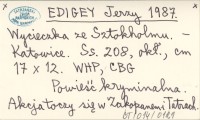 EDIGEY Jerzy 1987
Wycieczka ze Sztokholmu. -
Katowice. Ss. 208, okł., cm
17 x 12. WHP, CBG
Powieść kryminalna.
Akcja toczy się w Zakopanem i Tatrach.